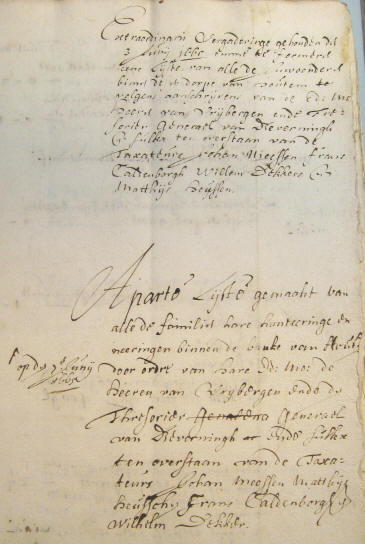 Extraordinaris Vergaderinge gehouden den
3 Junij 1665 omme te formeren
eene Lijste van alle de Inwoonders
binnen den dorpe van Houtem
volgens aanschrijvens van de Ed: Mo:
Heeren van Vrijbergen ende Tre-
sorier Generael van Dieverningh
ende sulkx ten overstaan van de
Taxateurs Johan Meessen frans
Caldenborgh Wilem Dekkers en
Matthijs Heussen.
Aparte Lijste gemaakt van
alle de familien hare hanteeringe en
neeringen binnen de banke van
op den 3e Junij
1665
voor ordre van hare Ed: Mo: de
Heeren van Vrijbergen ende de
Thresorier Generael
van Dieverningh ende sulkx
ten overstaan van de Taxa-
teurs Johan Meessen Matthijs
heusschen frans Caldenborgh en
Wilhelm Dekker.